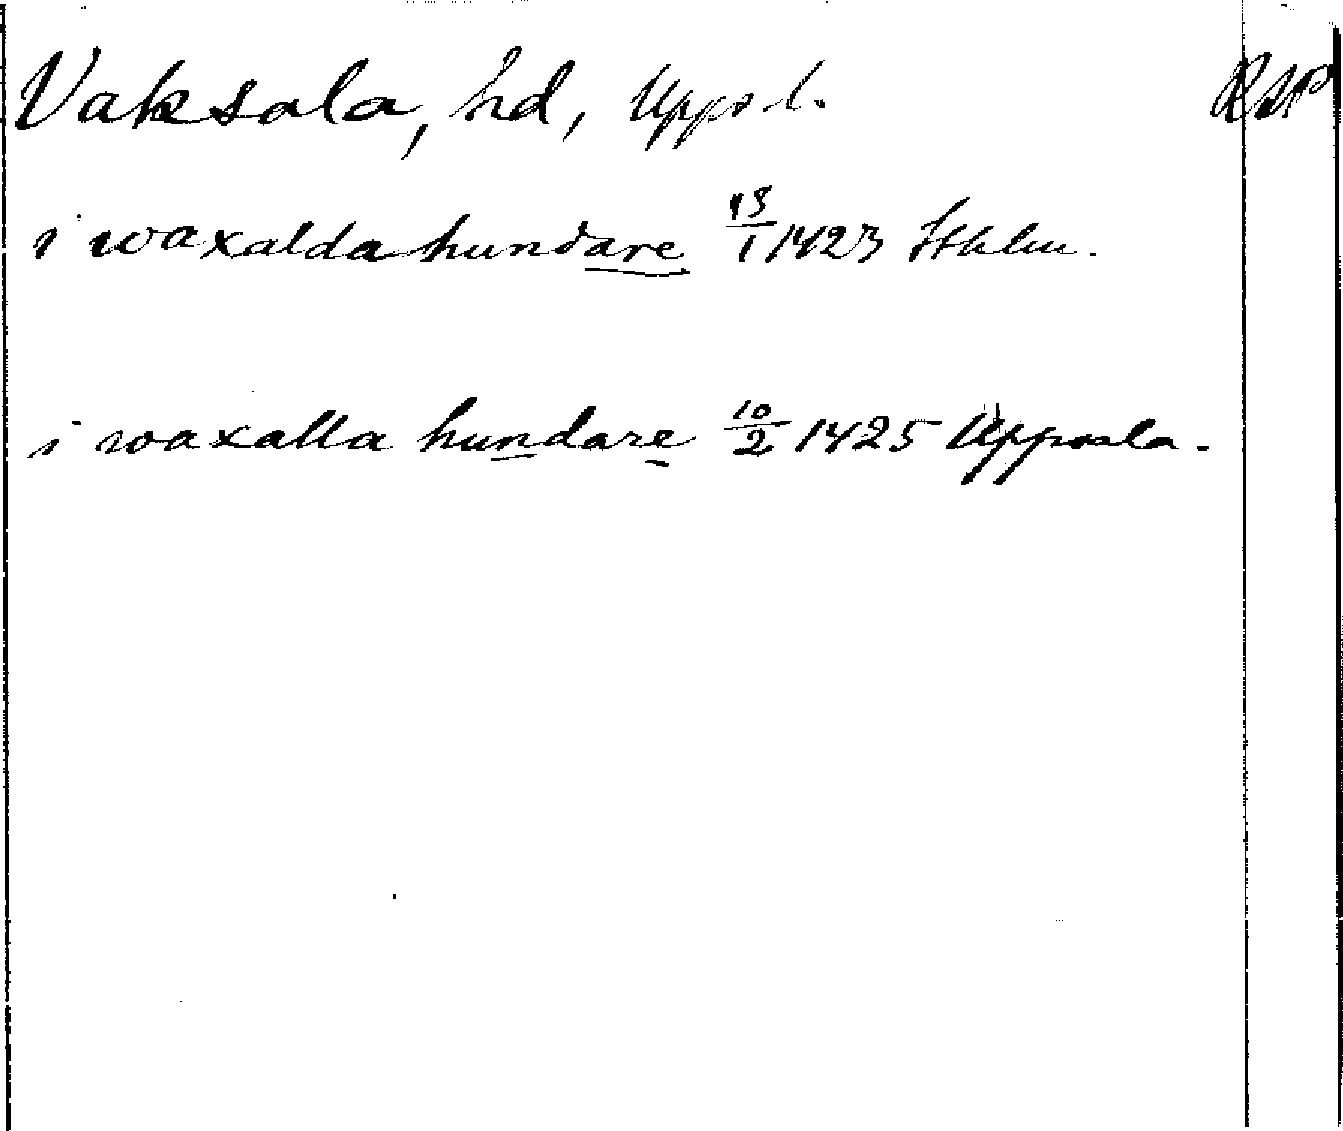 Vaksala, hd, Upps. l. RAP
i waxalda hundare 18/1 1423 Sthlm.
i waxalla hundare 10/2 1425 Uppsala.